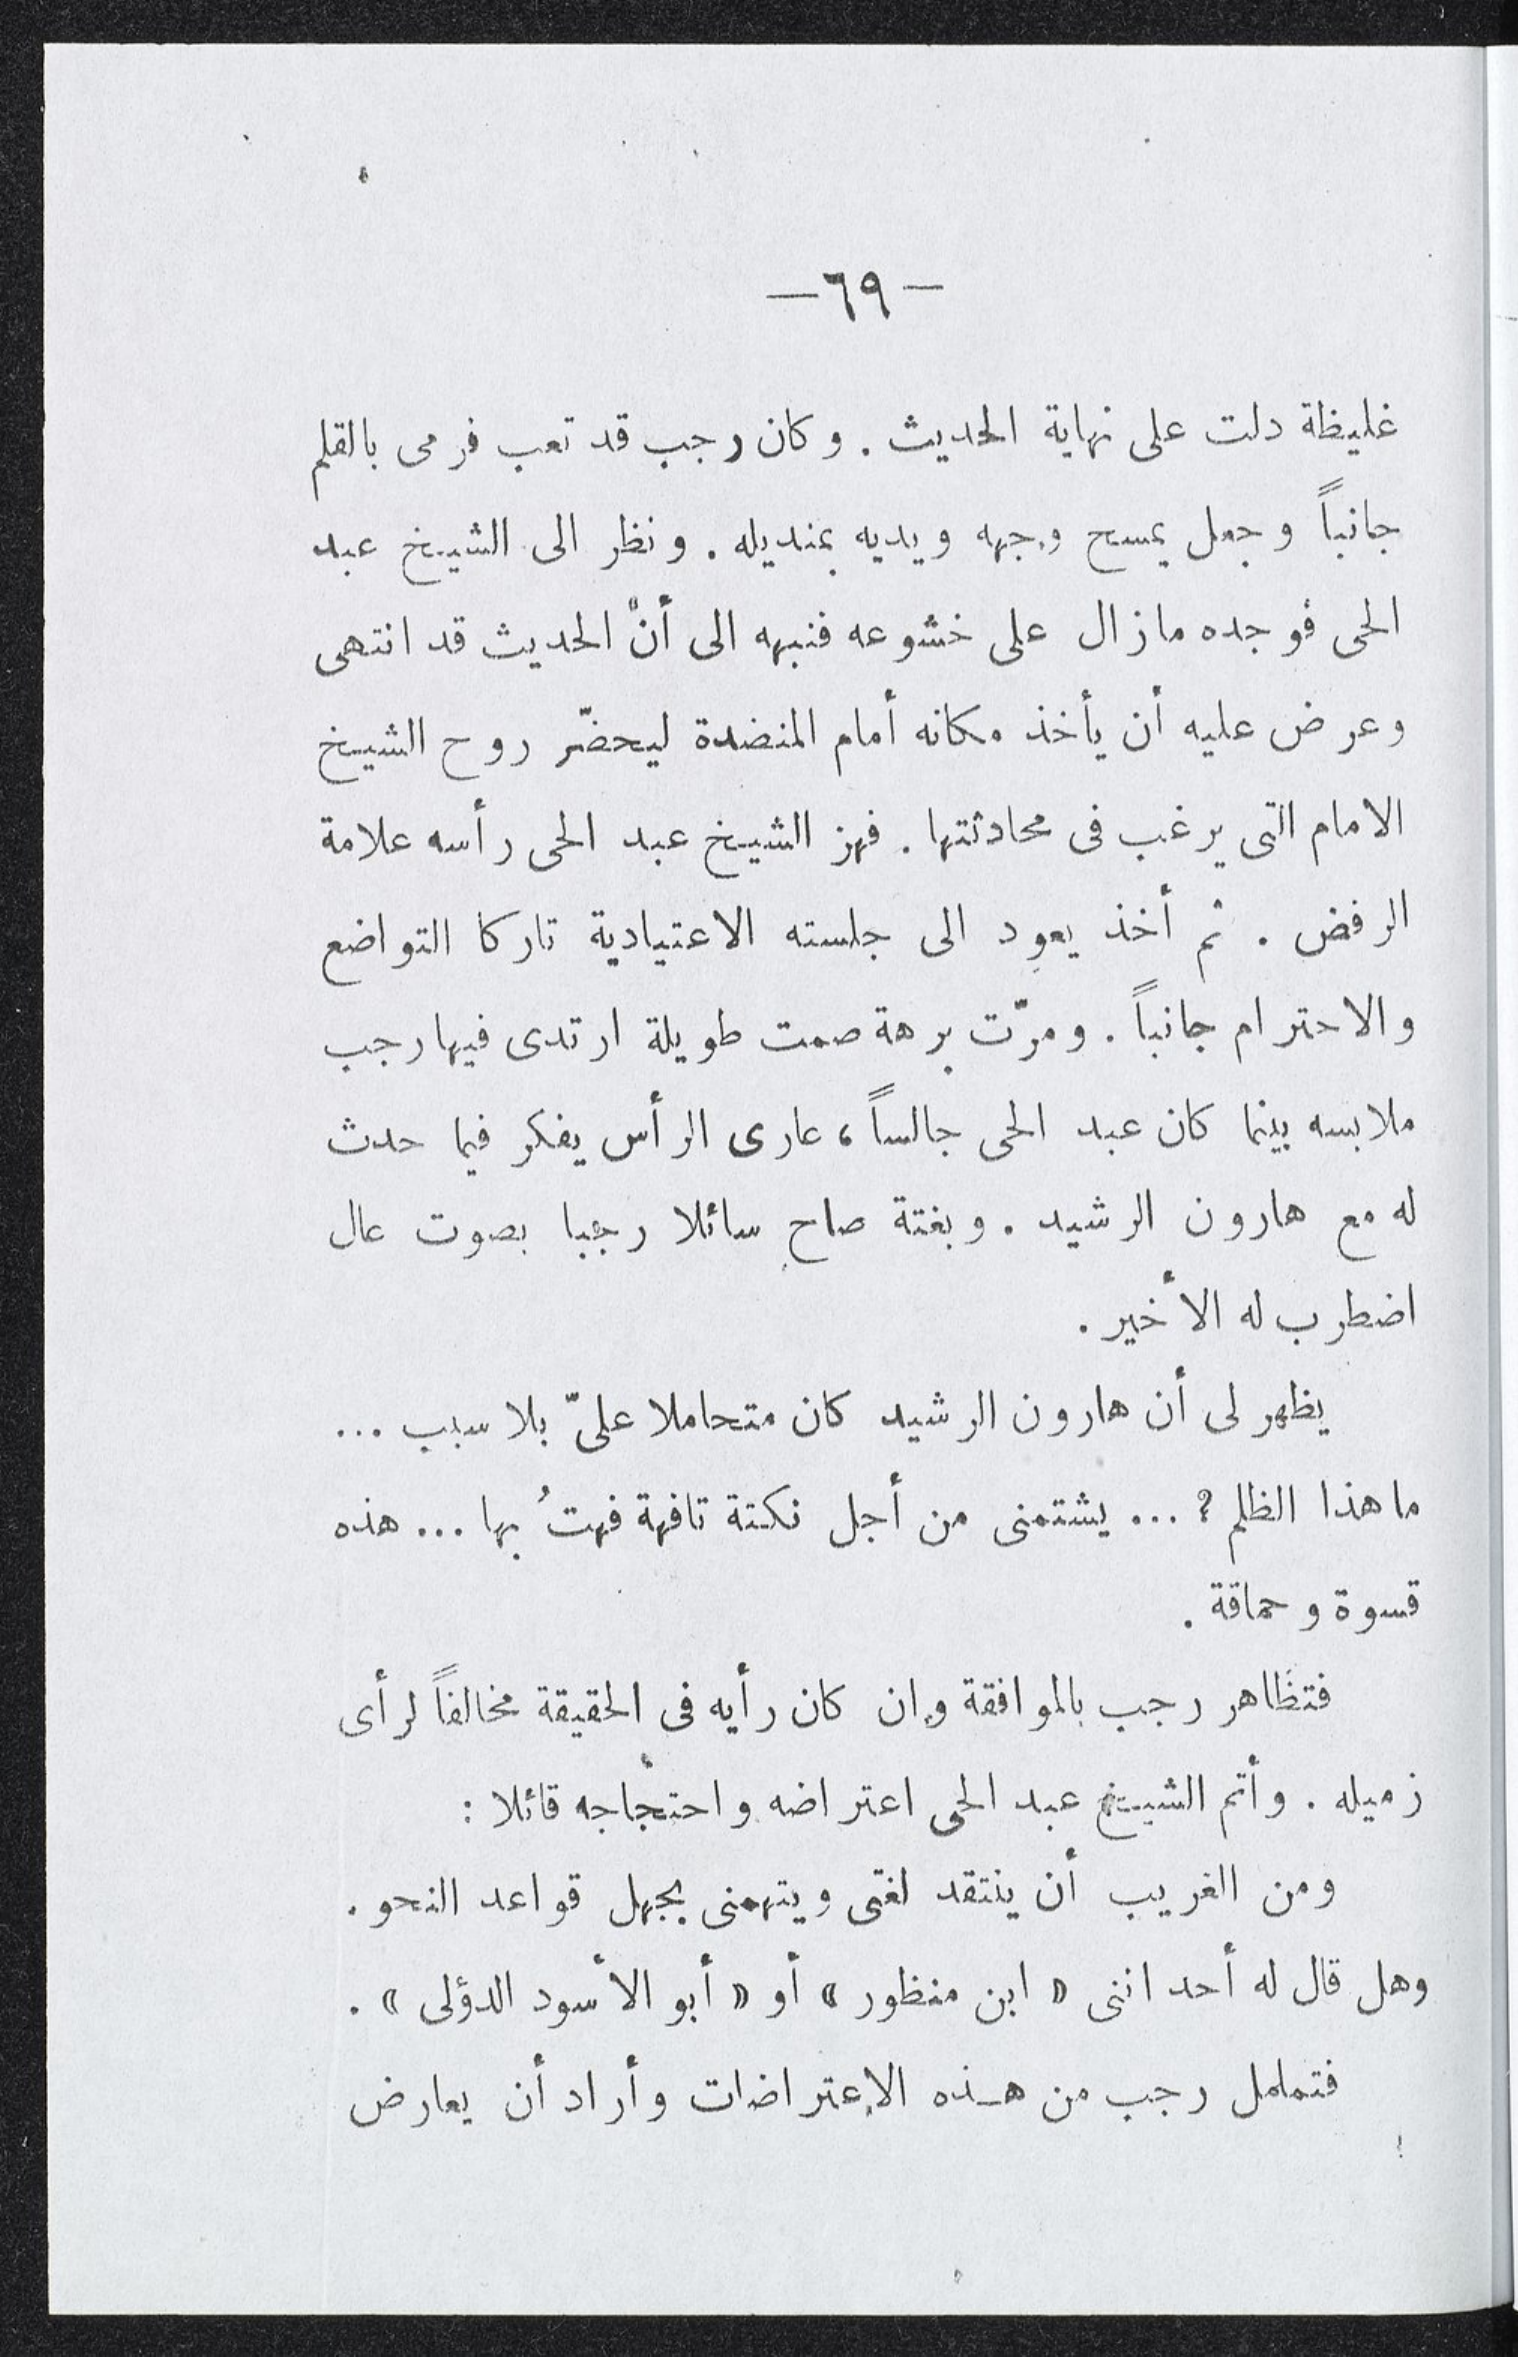 — ٦٩ —
غليظة دلت على نهاية الحديث . وكان رجب قد تعب فرمى بالقلم
جانباً وجعل يمسح وجهه ويديه بمنديله . ونظر الى الشيخ عبد
الحى فوجده مازال على خشوعه فنبهه الى أنّ الحديث قد انتهى
وعرض عليه أن يأخذ مكانه أمام المنضدة ليحضّر روح الشيخ
الامام التى يرغب فى محادثتها . فهز الشيخ عبد الحى رأسه علامة
الرفض . ثم أخذ يعود الى جلسته الاعتيادية تاركا التواضع
والاحترام جانباً . ومرّت برهة صمت طويلة ارتدى فيها رجب
ملابسه بينما كان عبد الحى جالساً ، عارى الرأس يفكر فيما حدث
له مع هارون الرشيد . وبغتة صاح سائلا رجبا بصوت عال
اضطرب له الأخير .
يظهر لى أن هارون الرشيد كان متحاملا علىّ بلا سبب ...
ما هذا الظلم ؟ ... يشتمنى من أجل نكتة تافهة فهتُ بها ... هذه
قسوة وحماقة .
فتظاهر رجب بالموافقة وان كان رأيه فى الحقيقة مخالفاً لرأى
زميله . وأتم الشيخ عبد الحى اعتراضه واحتجاجه قائلا :
ومن الغريب أن ينتقد لغتى ويتهمنى بجهل قواعد النحو .
وهل قال له أحد اننى « ابن منظور » أو « أبو الأسود الدؤلى » .
فتململ رجب من هـذه الإعتراضات وأراد أن يعارض